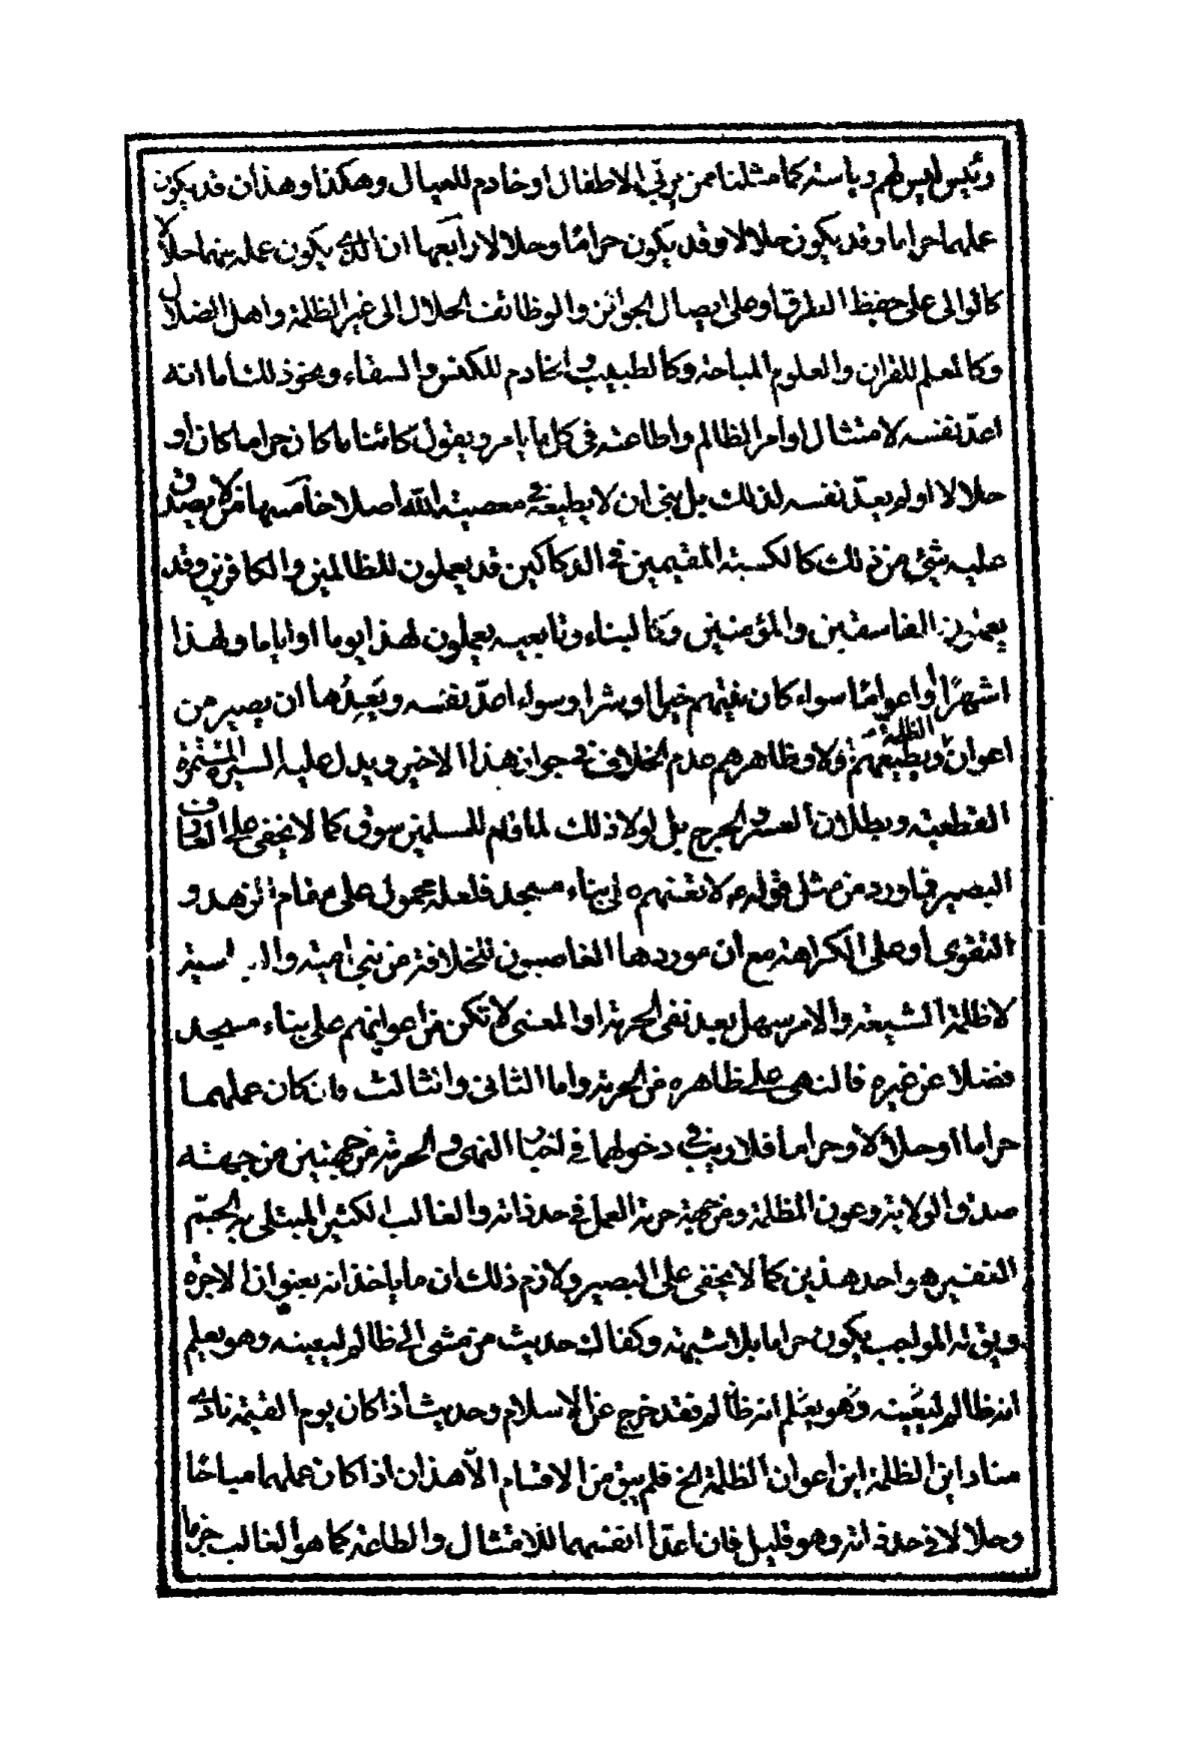 رئيس ليس لهم رياسته كما مثلنا ممن يربي الاطفال او خادم للعيال وهكذا وهذان قد يكون
عملهما حراما وقد يكون حلالا وقد يكون حرامًا وحلالا رابعها ان الذى يكون عمله بينهما حلالا
كالوالى على حفظ الطرق او على ايصال الجوائز والوظائف الحلال الى غير الظلمة واهل الضلال
وكالمعلم للقران والعلوم المباحة وكالطبيب والخادم للكنس والسقاء ونحو ذلك اما انه
اعدّ نفسه لامتثال اوامر الظالم واطاعته فى كل ما يامر ويقول كائنا ما كان حراما كان او
حلالا او لم يعدّ نفسه لذلك بل بنى ان لا يطيعه فى معصية الله اصلا خامسها من لا يصدق
عليه شئ من ذلك كالكسبة المقيمين فى الدكاكين قد يعملون للظالمين والكافرين وقد
يعملون الفاسقين والمؤمنين وكالبناء وتابعيه يعملون لهذا يوما او اياما ولهذا
اشهرًا او اعوامًا سواء كان نيتهم خيرا او شرا وسواء اعدّ نفسه ويعدها ان يصير من
اعوان الظلمة ويطيعهم او لا وظاهرهم عدم الخلاف فى جواز هذا الاخير ويدل عليه السيرة المستمرة
القطعية وبطلان العسر والحرج بل لولا ذلك لما قام للمسلمين سوق كما لا يخفى على العارف
البصير فما ورد من مثل قوله ع لا تعنهم على بناء مسجد فلعله محمول على مقام الزهد و
التقوى او على الكراهة مع ان موردها الغاصبون للخلافة من بنى امية وال
لا ظلمة الشيعة والامر سهل بعد نفى الحرمة او المعنى لا تكن من اعوانهم على بناء مسجد
فضلا عن غيره فالنهى على ظاهره من الحرمة واما الثانى والثالث فان كان عملهما
حراما او حلالا وحراما فلا ريب فى دخولهما فى اخبار النهى والحرمة من جهتين من جهة
صدق الولاية وعون الظلمة ومن جهة حرمة العمل فى حد ذاته والغالب الكثير المبتلى به الجمّ
الغفير هو احد هذين كما لا يخفى على البصير ولازم ذلك ان ما ياخذانه بعنوان الاجرة
المواجب يكون حراما بلا شبهة وكفاك حديث من مشى الى ظالم ليعينه وهو يعلم
انه ظالم ليعينه وهو يعلم انه ظالم فقد خرج عن الاسلام وحديث اذا كان يوم القيمة نادى
مناد اين الظلمة اين اعوان الظلمة الخ فلم يبق من الاقسام الا هذان اذا كان عملهما مباحًا
وحلالا فى حد ذاته وهو قليل فان اعدّا انفسهما للامتثال والطاعة كما هو الغالب حرما